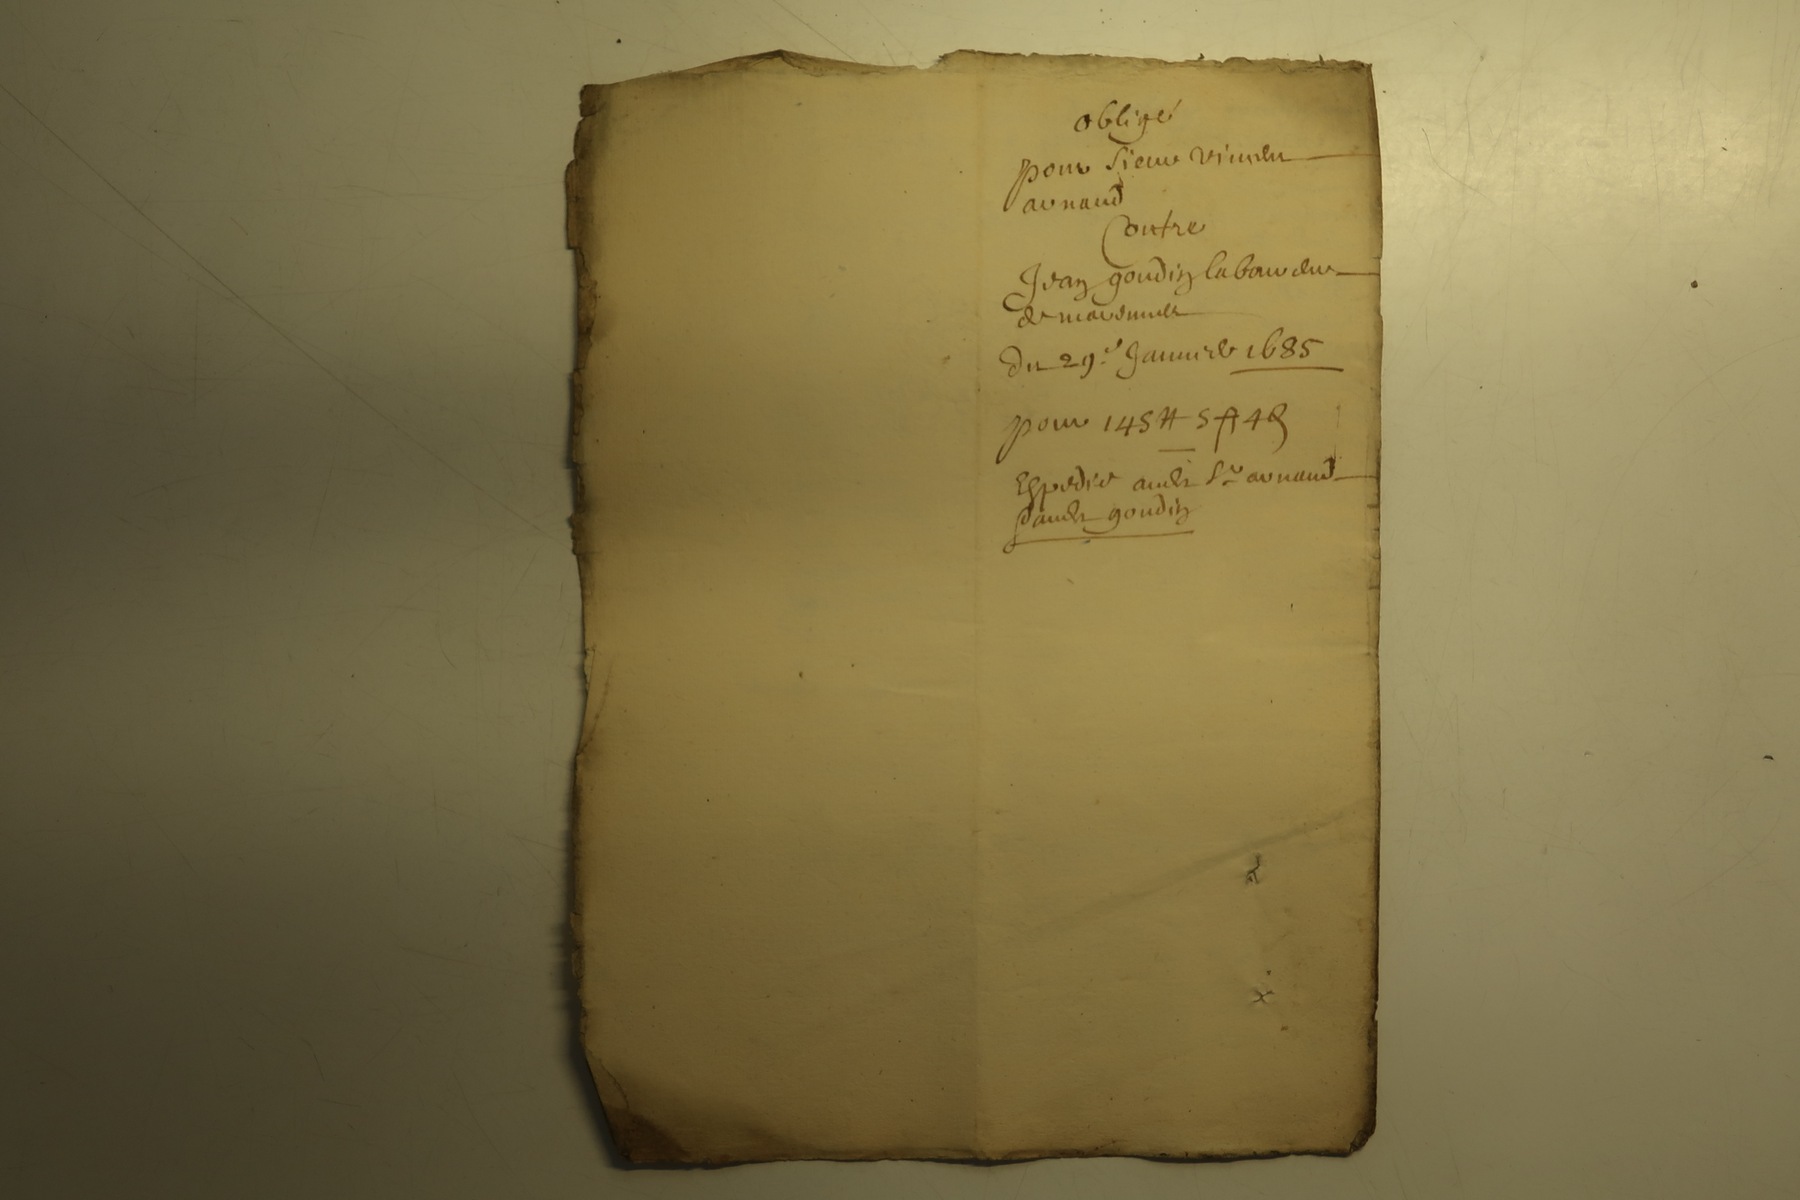 obligé
pour sieur vincent
arnaud
Contre
Jean goudin laboureur
de
du 29e Janvier 1685
pour 145 ₶ 5 ß 4 d
Expedié audit Sr arnaud
& audit goudin